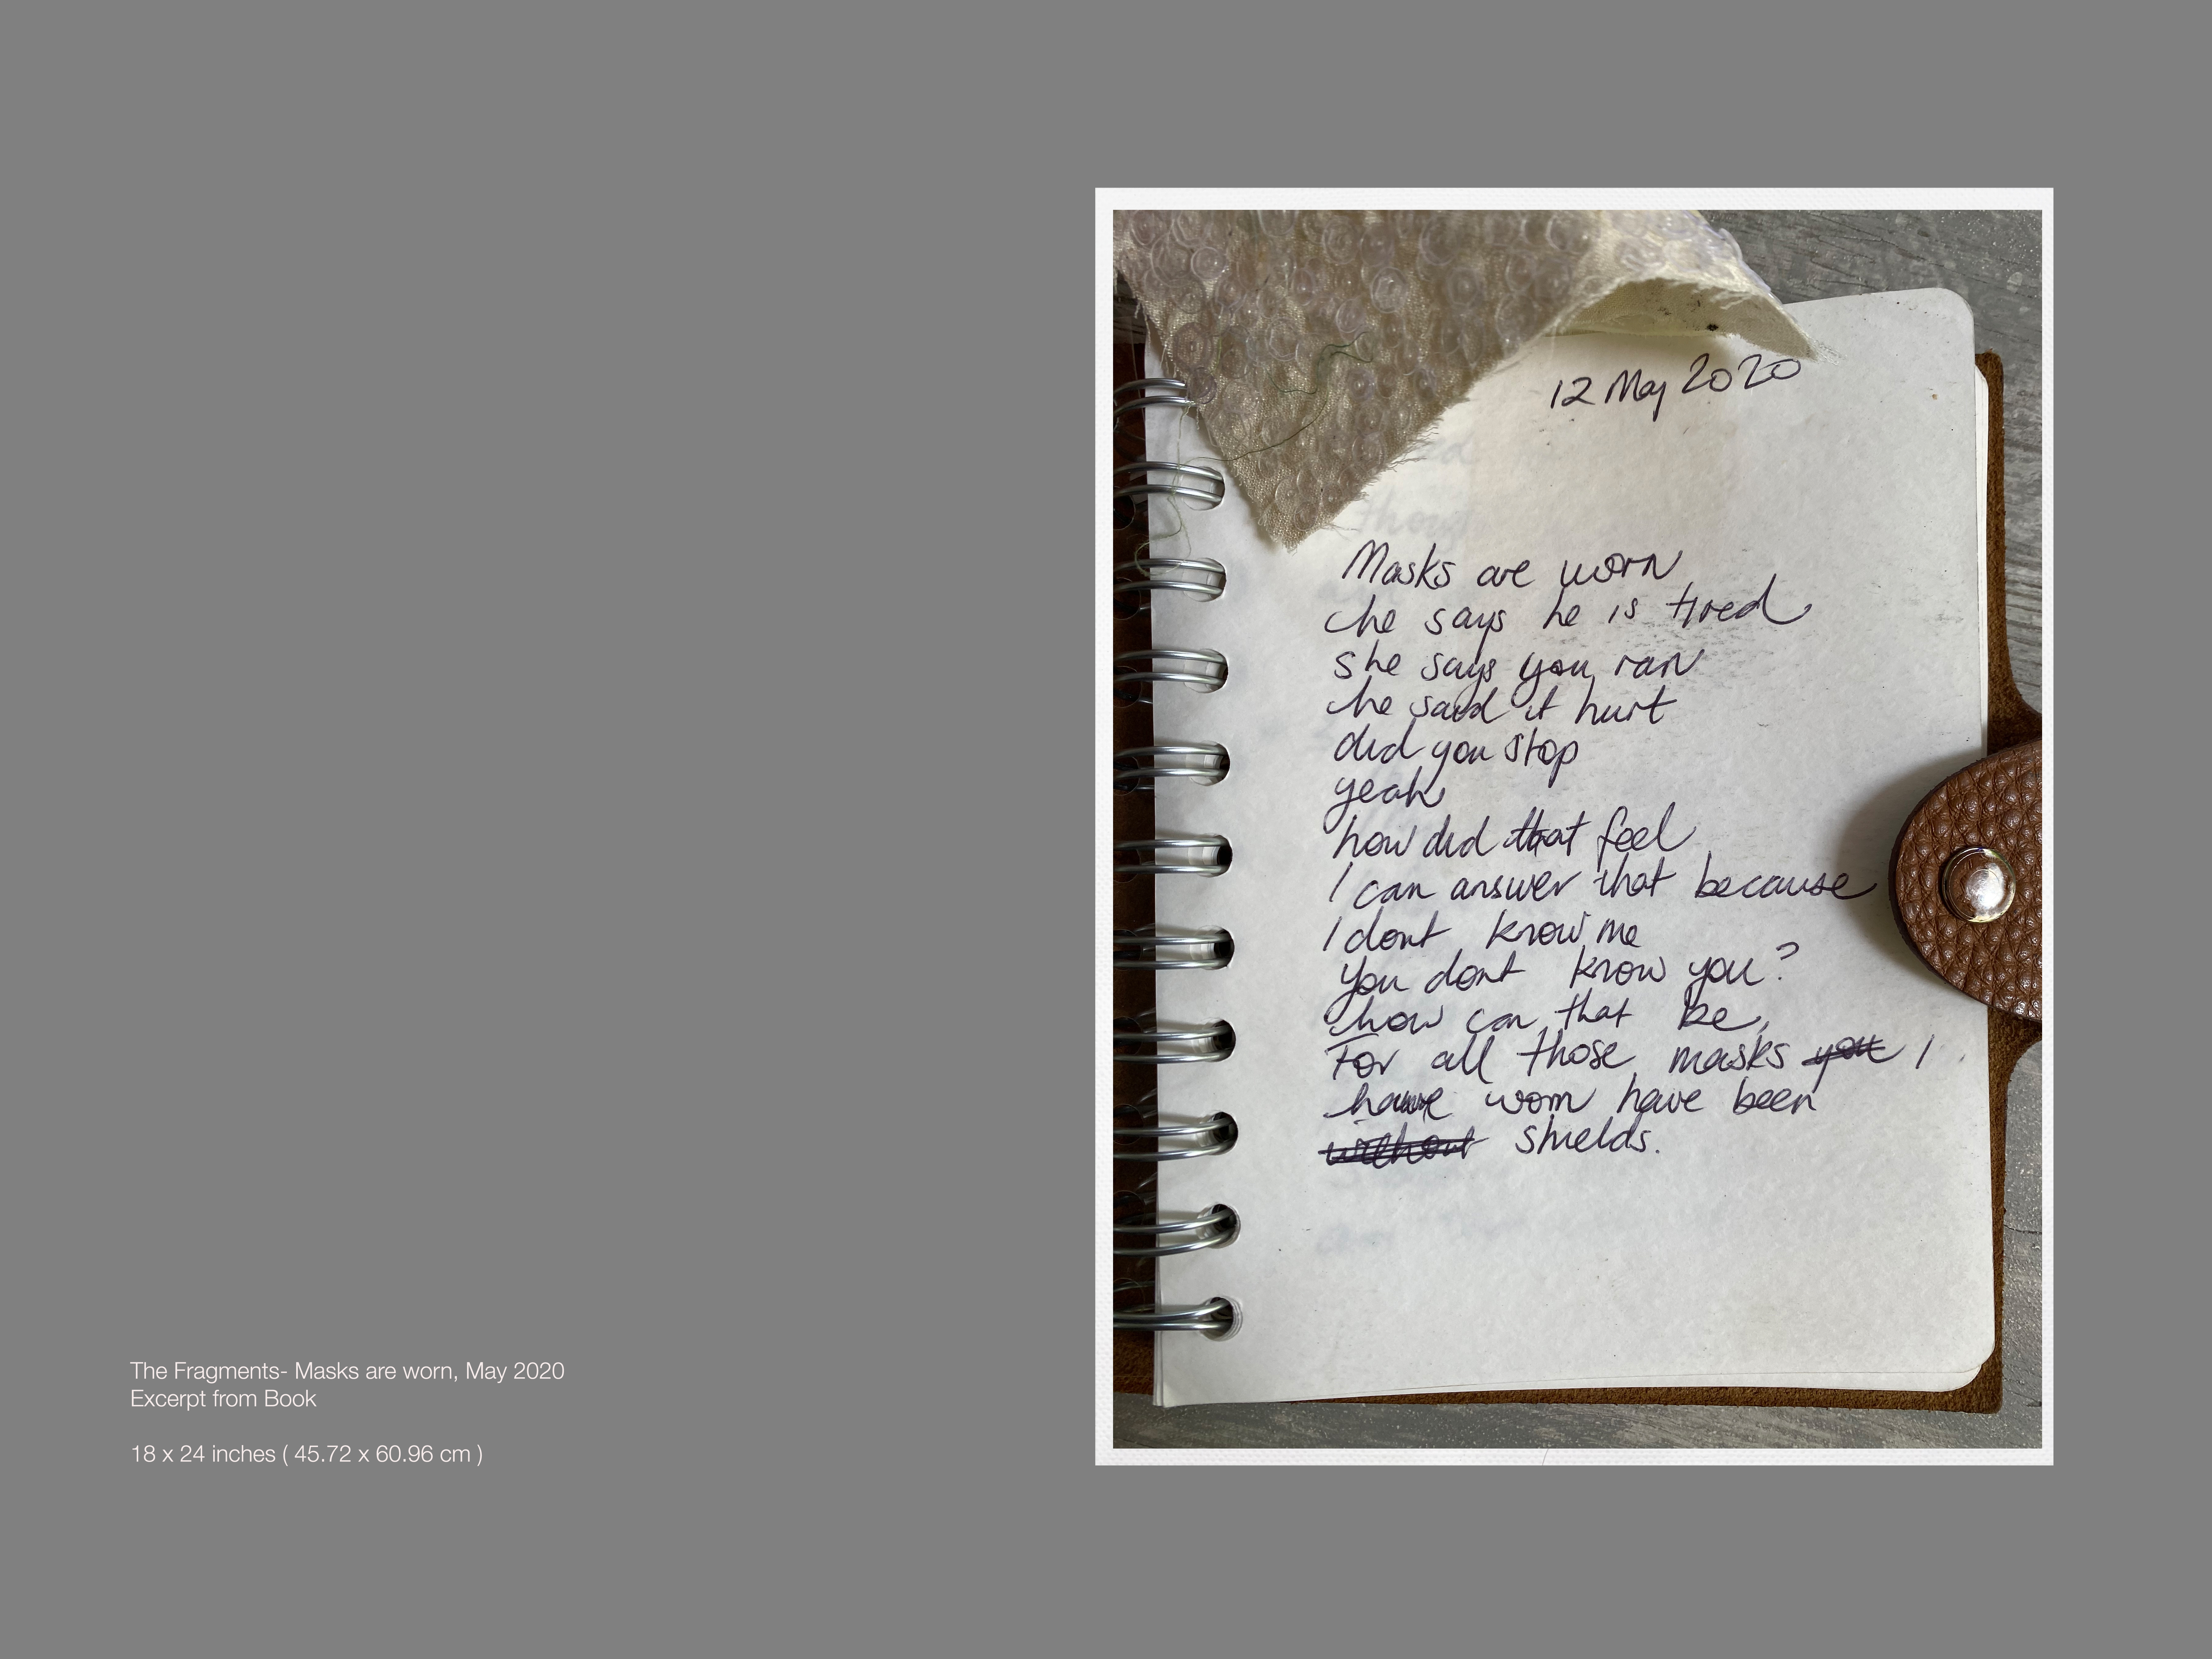 12 May 2020
Masks are worn
he says he is tired
she says you ran
he said it hurt
did you stop
yeah
how did that feel
I can answer that because
I dont know me
you dont know you?
how can that be,
For all those masks you I
have worn have been
without shields.
The Fragments- Masks are worn, May 2020
Excerpt from Book
18 x 24 inches ( 45.72 x 60.96 cm )